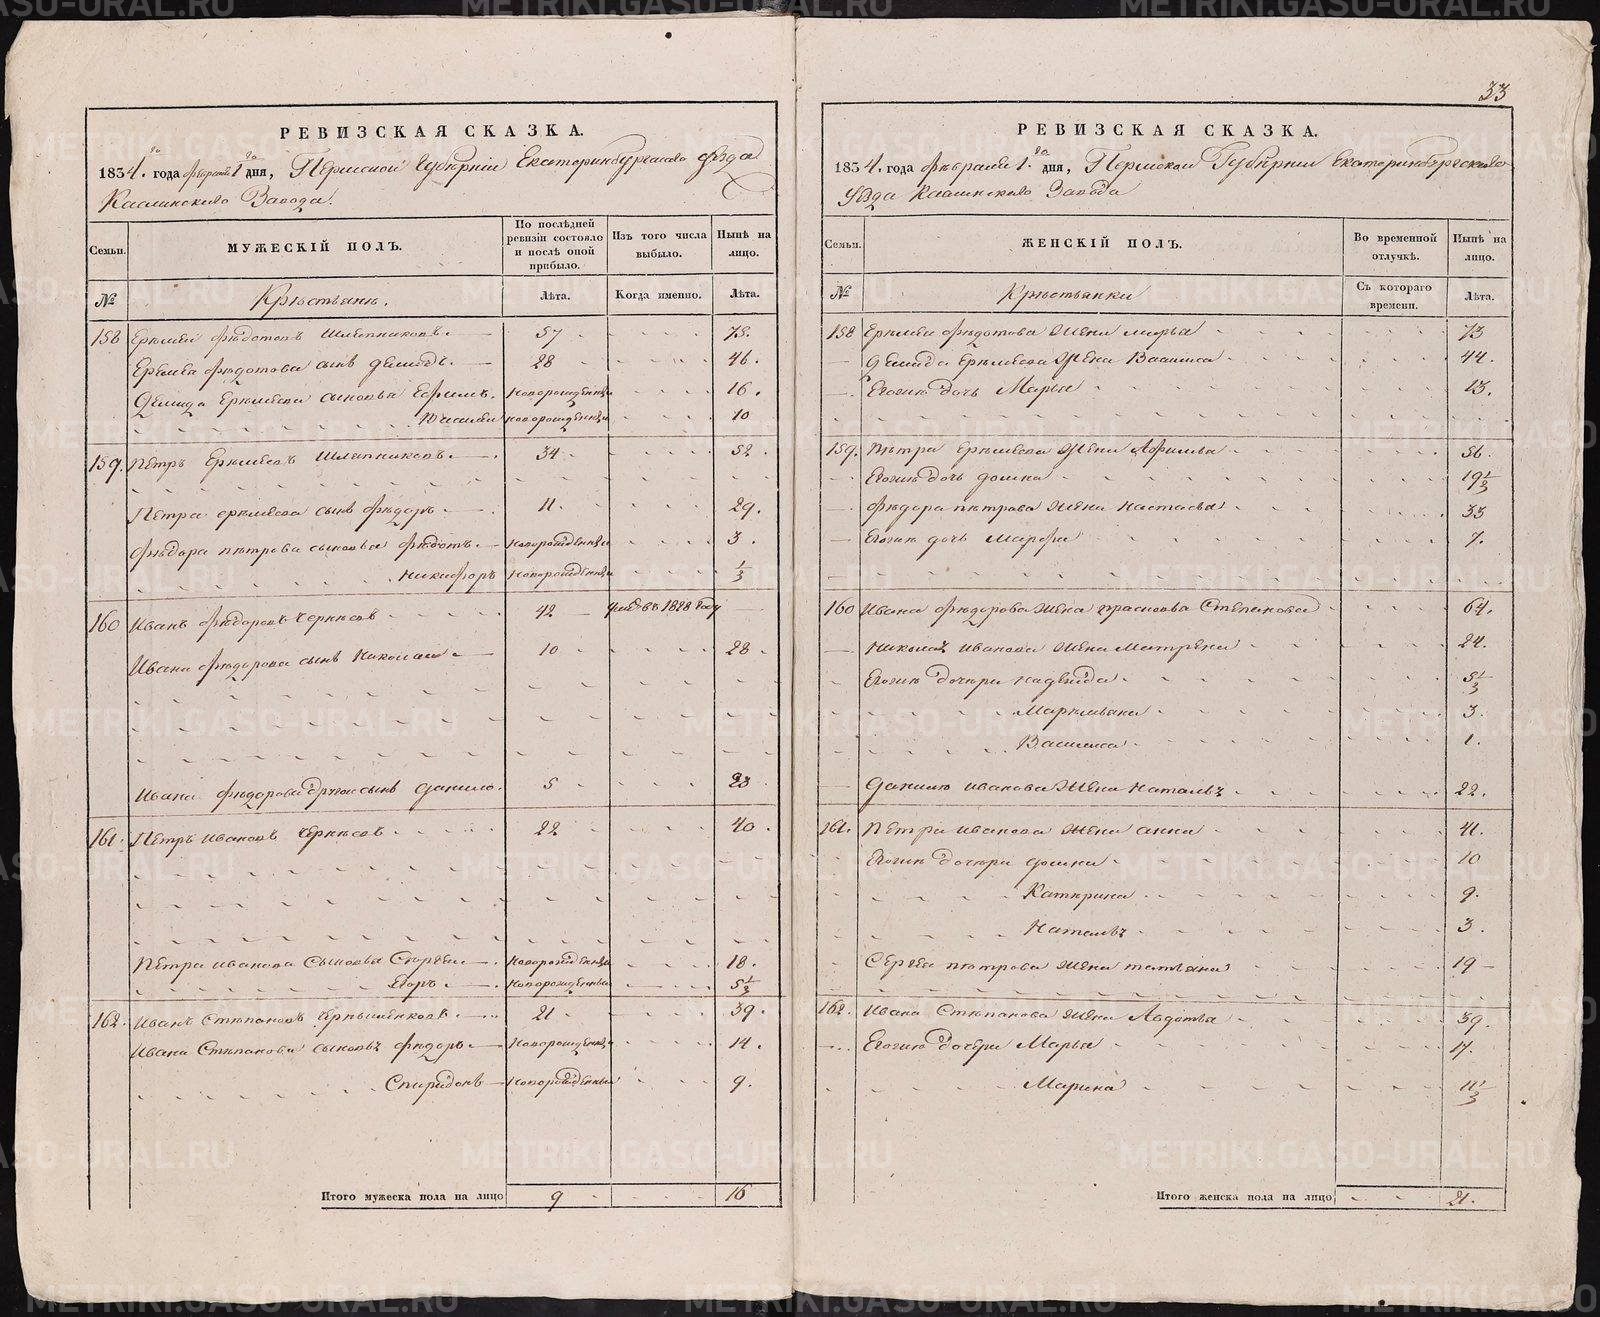 33
РЕВИЗСКАЯ СКАЗКА.
1834. года февраля 1го дня, Пермской Губернiи Екатеринбургскаго уѣзда
Каслинскаго Завода.
Семьи.
МУЖЕСКІЙ ПОЛЪ.
По послѣдней ревизіи состояло и послѣ оной прибыло.
Изъ того числа выбыло.
Нынѣ на лицо.
№
Крестьяне.
Лѣта.
Когда именно.
Лѣта.
158 Еремей Федотовъ Шляпниковъ. 57 75.
Еремея Федотова сынъ Демидъ. 28 46.
Демида Еремеева сыновья Ефимъ. новорожденный 16.
Василей новорожденный 10
159. Петръ Еремеевъ Шляпниковъ. 34 52.
Петра Еремеева сынъ Федоръ. 11. 29.
Федора Петрова сыновья Федотъ. новорожденный 3.
Никифоръ новорожденный 1/3
160 Иванъ Федоровъ 42 умре въ 1828 году
Ивана Федорова сынъ Николай 10 28.
Ивана Федорова другой сынъ Данило. 5 23
161. Петръ Ивановъ 22 40.
Петра Иванова Сыновья Сергей новорожденный 18.
Егоръ новорожденный 5 1/3
162. Иванъ Степановъ 21 39.
Ивана Степанова сыновья Федоръ новорожденный 14.
Спиридонъ новорожденный 9.
Итого мужеска пола на лицо 9 16
РЕВИЗСКАЯ СКАЗКА.
1834. года февраля 1го дня, Пермской Губернiи Екатеринбургскаго
Уѣзда Каслинскаго Завода
Семьи.
ЖЕНСКІЙ ПОЛЪ.
Во временной отлучкѣ.
Нынѣ на лицо.
№
Крестьянки
Съ котораго времени.
Лѣта.
158 Еремея Федотова Жена Марья 73
Демида Еремеева Жена Василиса 44.
Егожъ дочь Марья 13.
159. Петра Еремеева Жена Афимья 56.
Егожъ дочь Домна 19 1/2
Федора Петрова Жена Настасья 33
Егожъ дочь Марфа 7.
160 Ивана Федорова Жена Прасковья Степанова 64.
Николая Иванова Жена Матрена 24.
Егожъ дочери Надежда 5 1/3
Маремьяна 3.
Василиса 1.
Данилы Иванова Жена Наталья 22.
161. Петра Иванова Жена Анна 41.
Егожъ дочери Домна 10
Катерина 9.
Наталья 3.
Сергея Петрова Жена Татьяна 19
162. Ивана Степанова Жена Авдотья 39.
Егожъ дочери Марья 17.
Марина 11 1/3
Итого женска пола на лицо 21.
METRIKI.GASO-URAL.RU